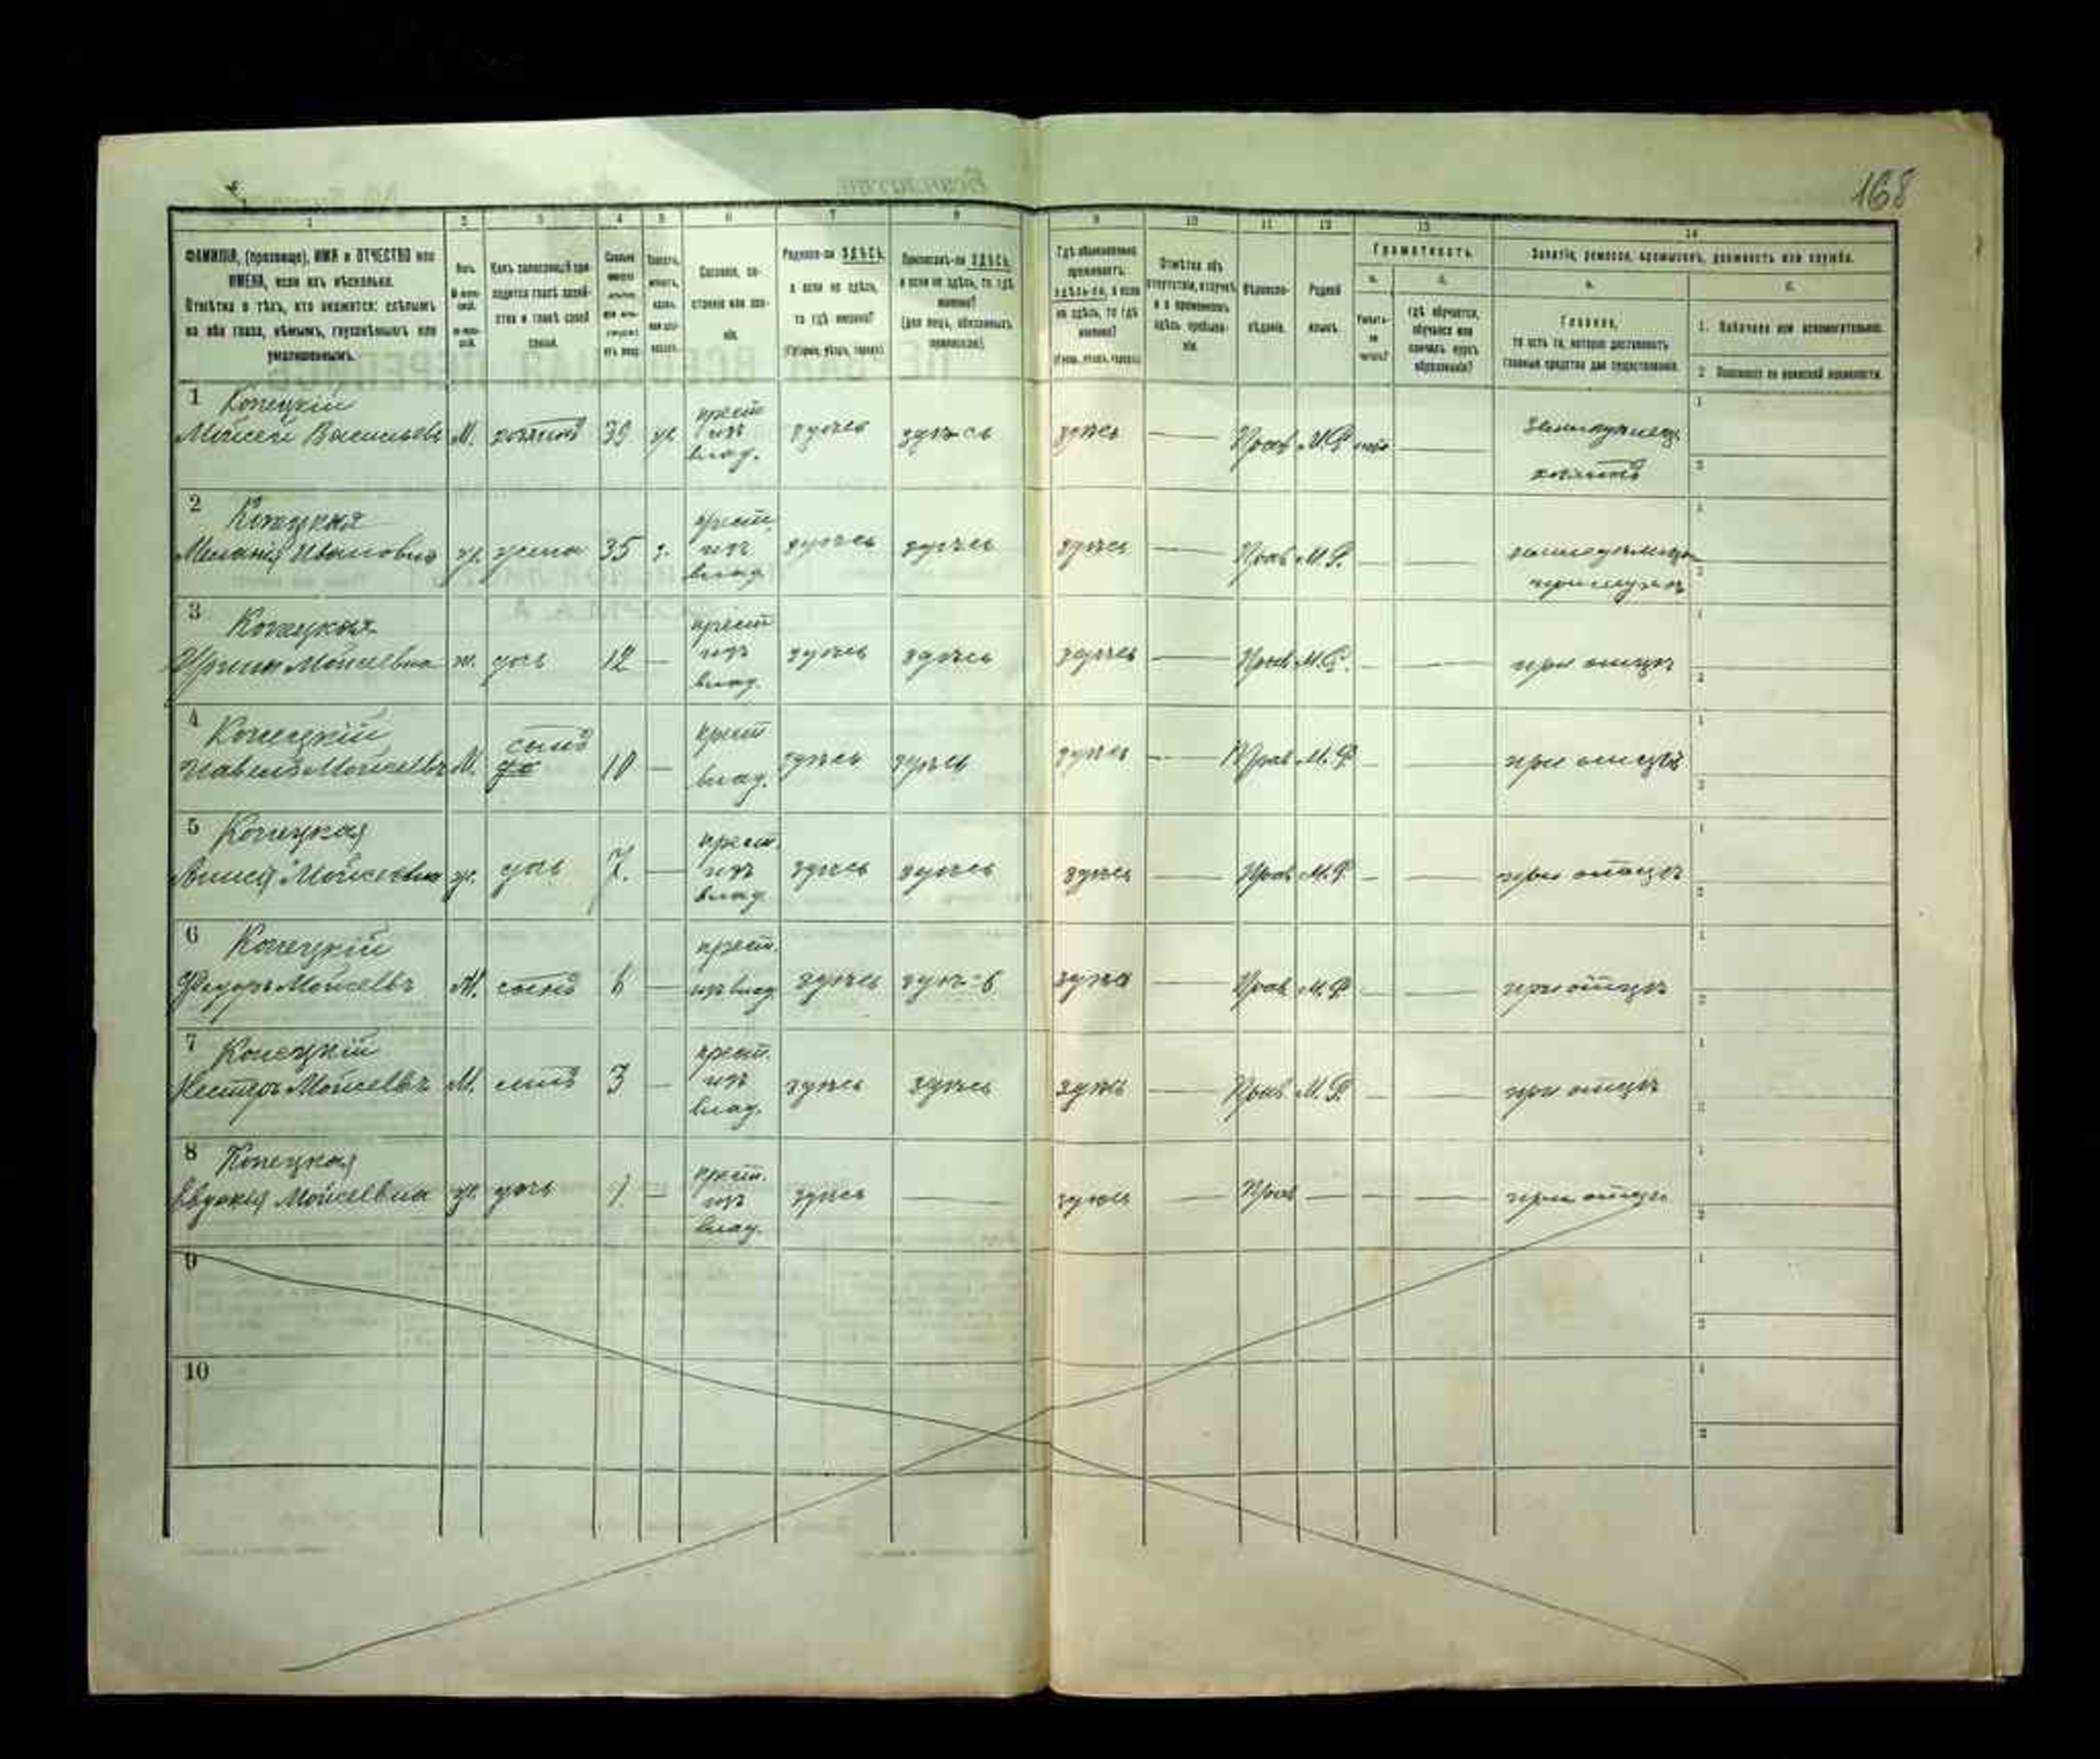 168
1 2 3 4 5 6 7 8 9 10 11 12 13 14
ФАМИЛІЯ, (прозвище), ИМЯ и ОТЧЕСТВО или
ИМЕНА, если ихъ нѣсколько.
Отмѣтка о тѣхъ, кто окажется: слѣпымъ
на оба глаза, нѣмымъ, глухонѣмымъ или
умалишеннымъ.
Полъ.
Какъ записанный при-
ходится главѣ хозяй-
ства и главѣ своей
семьи.
Сословіе, со-
стояніе или зва-
ніе.
Родился-ли ЗДѢСЬ,
а если не здѣсь,
то гдѣ именно?
(Губернія, уѣздъ, городъ).
Приписанъ-ли ЗДѢСЬ,
а если не здѣсь, то гдѣ
именно?
(для лицъ, обязанныхъ
припискою).
Гдѣ обыкновенно
проживаетъ:
здѣсь-ли, а если
не здѣсь, то гдѣ
именно?
Отмѣтка объ
отсутствіи, отлучкѣ
и о временномъ
здѣсь пребыва-
ніи.
Вѣроиспо-
вѣданіе.
Родной
языкъ.
Грамотность.
а. б.
Умѣетъ-
ли
читать?
гдѣ обучается,
обучался или
кончилъ курсъ
образованія?
Занятіе, ремесло, промыселъ, должность или служба.
а. б.
Главное,
то есть то, которое доставляетъ
главныя средства для существованія.
1. Побочное или вспомогательное.
2 Положеніе по воинской повинности.
1 Копецкій
Мойсей Васильевъ М. хозяинъ 39 ж крест
изъ
влад. здѣсь здѣсь здѣсь — Прав М.Р — хозяинъ
2 Копецкая
Меланія Ивановна ж. жена 35 з. крест.
изъ
влад. здѣсь здѣсь здѣсь — Прав М.Р. при мужѣ
3 Копецкая
Мойсеевна ж. дочь 12 — крест
изъ
влад. здѣсь здѣсь здѣсь — Прав М.Р. — — при отцѣ
4 Копецкій
Павелъ Мойсеевъ М. сынъ 10 — крест
влад. здѣсь здѣсь здѣсь — Прав М.Р — — при отцѣ
5 Копецкая
Мойсеевна ж. дочь 7. — крест.
изъ
влад. здѣсь здѣсь здѣсь — Прав М.Р — — при отцѣ
6 Копецкій
Федоръ Мойсеевъ М. сынъ 6 — крест.
изъ влад здѣсь здѣсь здѣсь — Прав М.Р — — при отцѣ
7 Копецкій
Нестеръ Мойсеевъ М. сынъ 3 — крест.
изъ
влад. здѣсь здѣсь здѣсь — Прав. М.Р. — — при отцѣ
8 Копецкая
Евдокія Мойсеевна ж. дочь 1 — крест.
изъ
влад. здѣсь — здѣсь — Прав — — — при отцѣ
9
10